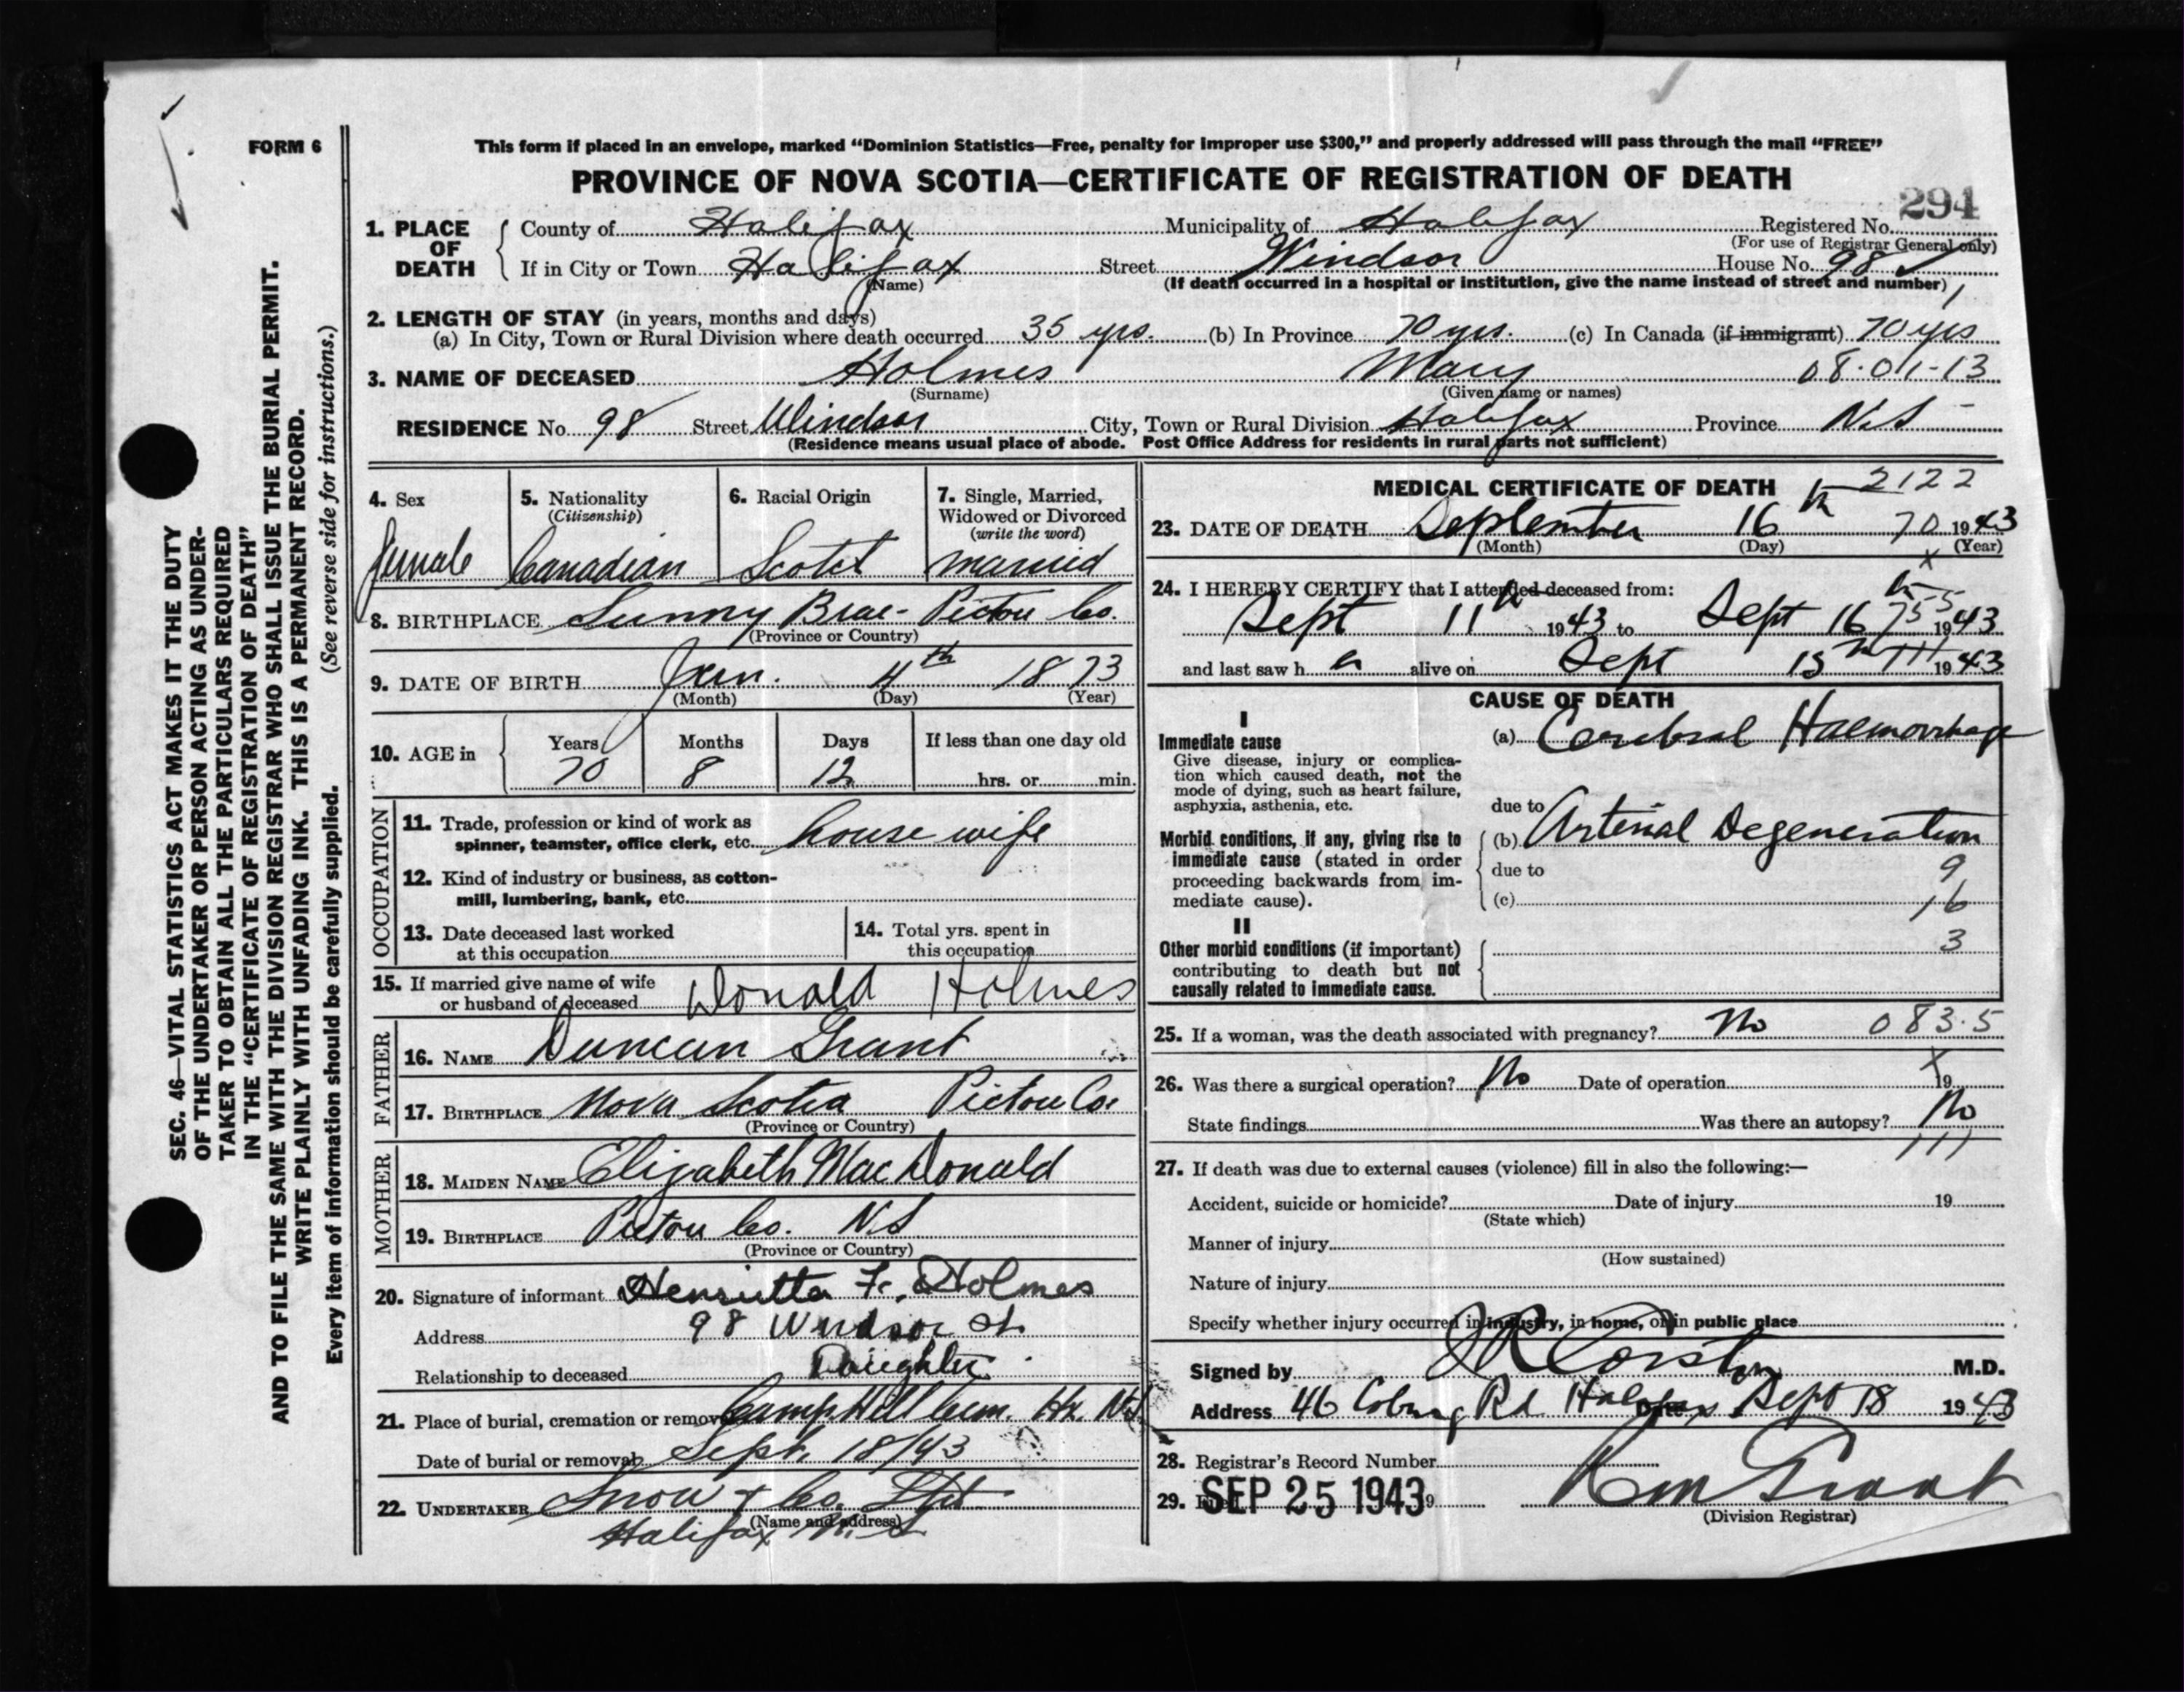 FORM 6
This form if placed in an envelope, marked "Dominion Statistics—Free, penalty for improper use $300," and properly addressed will pass through the mail "FREE"
PROVINCE OF NOVA SCOTIA—CERTIFICATE OF REGISTRATION OF DEATH
294
1. PLACE OF DEATH
County of Halifax Municipality of Halifax Registered No.
(For use of Registrar General only)
If in City or Town Halifax Street Windsor House No. 98
(Name) (If death occurred in a hospital or institution, give the name instead of street and number)
2. LENGTH OF STAY (in years, months and days)
(a) In City, Town or Rural Division where death occurred 35 yrs. (b) In Province 70 yrs. (c) In Canada (if immigrant) 70 yrs
3. NAME OF DECEASED Holmes Mary 08-01-13
(Surname) (Given name or names)
RESIDENCE No. 98 Street Windsor City, Town or Rural Division Halifax Province N.S
(Residence means usual place of abode. Post Office Address for residents in rural parts not sufficient)
4. Sex
female
5. Nationality
(Citizenship)
Canadian
6. Racial Origin
Scotch
7. Single, Married,
Widowed or Divorced
(write the word)
married
8. BIRTHPLACE Sunny Brae - Pictou Co.
(Province or Country)
9. DATE OF BIRTH Jan. 4th 1873
(Month) (Day) (Year)
10. AGE in
Years Months Days If less than one day old
70 8 12 hrs. or min.
OCCUPATION
11. Trade, profession or kind of work as
spinner, teamster, office clerk, etc. house wife
12. Kind of industry or business, as cotton-
mill, lumbering, bank, etc.
13. Date deceased last worked
at this occupation
14. Total yrs. spent in
this occupation
15. If married give name of wife
or husband of deceased Donald Holmes
FATHER
16. NAME Duncan Grant
17. BIRTHPLACE Nova Scotia Pictou Co.
(Province or Country)
MOTHER
18. MAIDEN NAME Elizabeth MacDonald
19. BIRTHPLACE Pictou Co. N.S
(Province or Country)
20. Signature of informant Henrietta F. Holmes
Address 98 Windsor St.
Relationship to deceased Daughter
21. Place of burial, cremation or removal Camp Hill Cem. Hx. N.S
Date of burial or removal Sept. 18/43
22. UNDERTAKER Snow & Co. Ltd.
(Name and address)
Halifax N.S
MEDICAL CERTIFICATE OF DEATH 2122
23. DATE OF DEATH September 16th 70 1943
(Month) (Day) (Year)
24. I HEREBY CERTIFY that I attended deceased from:
Sept 11th 1943 to Sept 16th 1943
and last saw h er alive on Sept 15th 1943
CAUSE OF DEATH
I
Immediate cause
Give disease, injury or complica-
tion which caused death, not the
mode of dying, such as heart failure,
asphyxia, asthenia, etc.
(a) Cerebral Haemorrhage
due to
Morbid conditions, if any, giving rise to
immediate cause (stated in order
proceeding backwards from im-
mediate cause).
(b) Arterial Degeneration
due to 9
(c) 16
II
Other morbid conditions (if important)
contributing to death but not
causally related to immediate cause.
3
25. If a woman, was the death associated with pregnancy? No 083.5
26. Was there a surgical operation? No Date of operation 19
State findings Was there an autopsy? No
111
27. If death was due to external causes (violence) fill in also the following:—
Accident, suicide or homicide? Date of injury 19
(State which)
Manner of injury
(How sustained)
Nature of injury
Specify whether injury occurred in industry, in home, or in public place
Signed by M.D.
Address 46 Coburg Rd Halifax Date Sept 18 1943
28. Registrar's Record Number
29. Filed SEP 25 1943
(Division Registrar)
SEC. 46—VITAL STATISTICS ACT MAKES IT THE DUTY
OF THE UNDERTAKER OR PERSON ACTING AS UNDER-
TAKER TO OBTAIN ALL THE PARTICULARS REQUIRED
IN THE "CERTIFICATE OF REGISTRATION OF DEATH"
AND TO FILE THE SAME WITH THE DIVISION REGISTRAR WHO SHALL ISSUE THE BURIAL PERMIT.
WRITE PLAINLY WITH UNFADING INK. THIS IS A PERMANENT RECORD.
Every item of information should be carefully supplied. (See reverse side for instructions.)